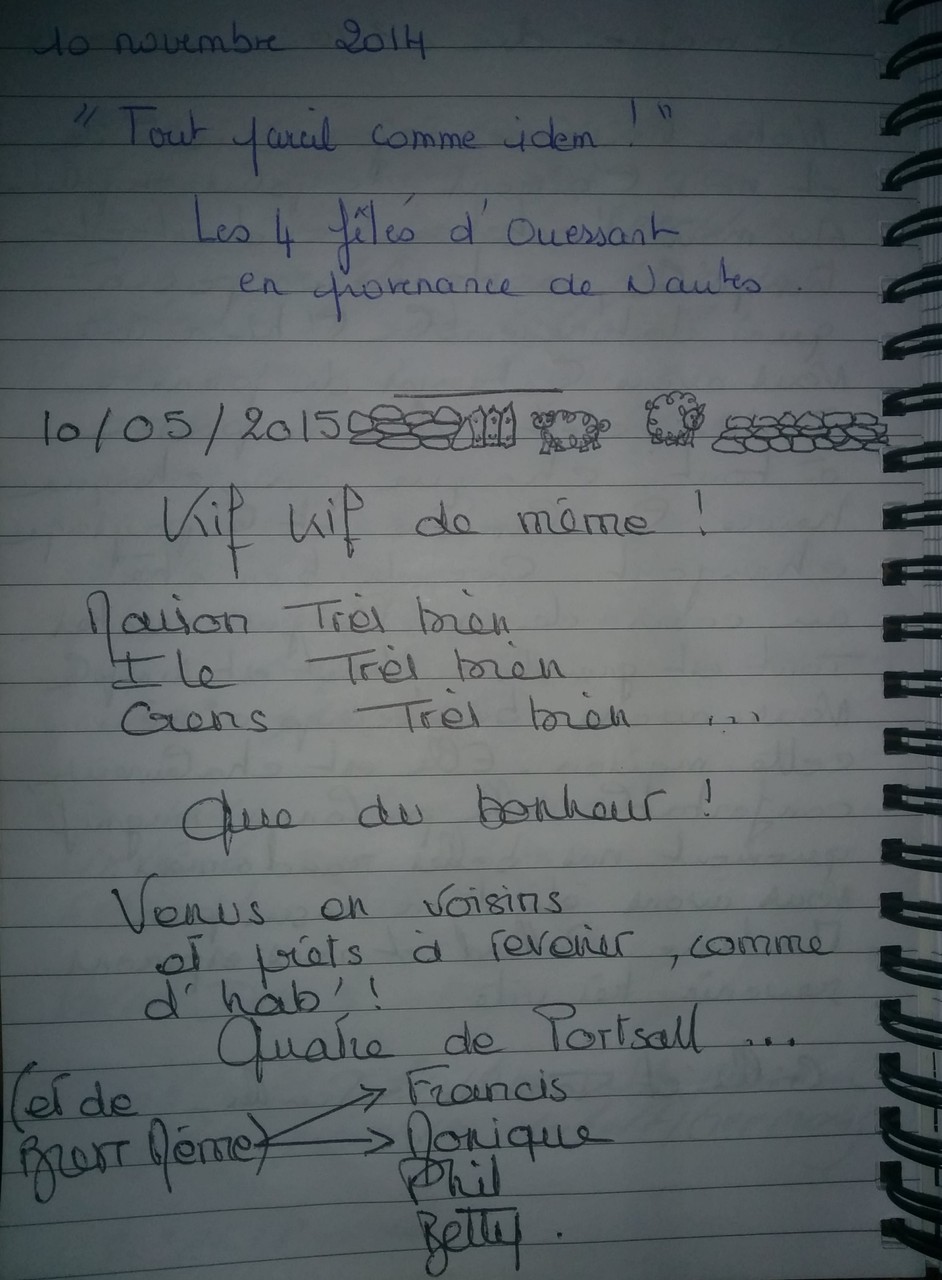 10 novembre 2014
" Tout pareil comme idem ! "
Les 4 fêlés d'Ouessant
en provenance de Nantes .
10/05/2015
Kif Kif de même !
Maison Très bien
Ile Très bien
Gens Très bien ...
Que du bonheur !
Venus en voisins
et prêts à revenir , comme
d'hab' !
Quatre de Portsall ...
(et de Francis
Brest Même) Monique
Phil
Betty .